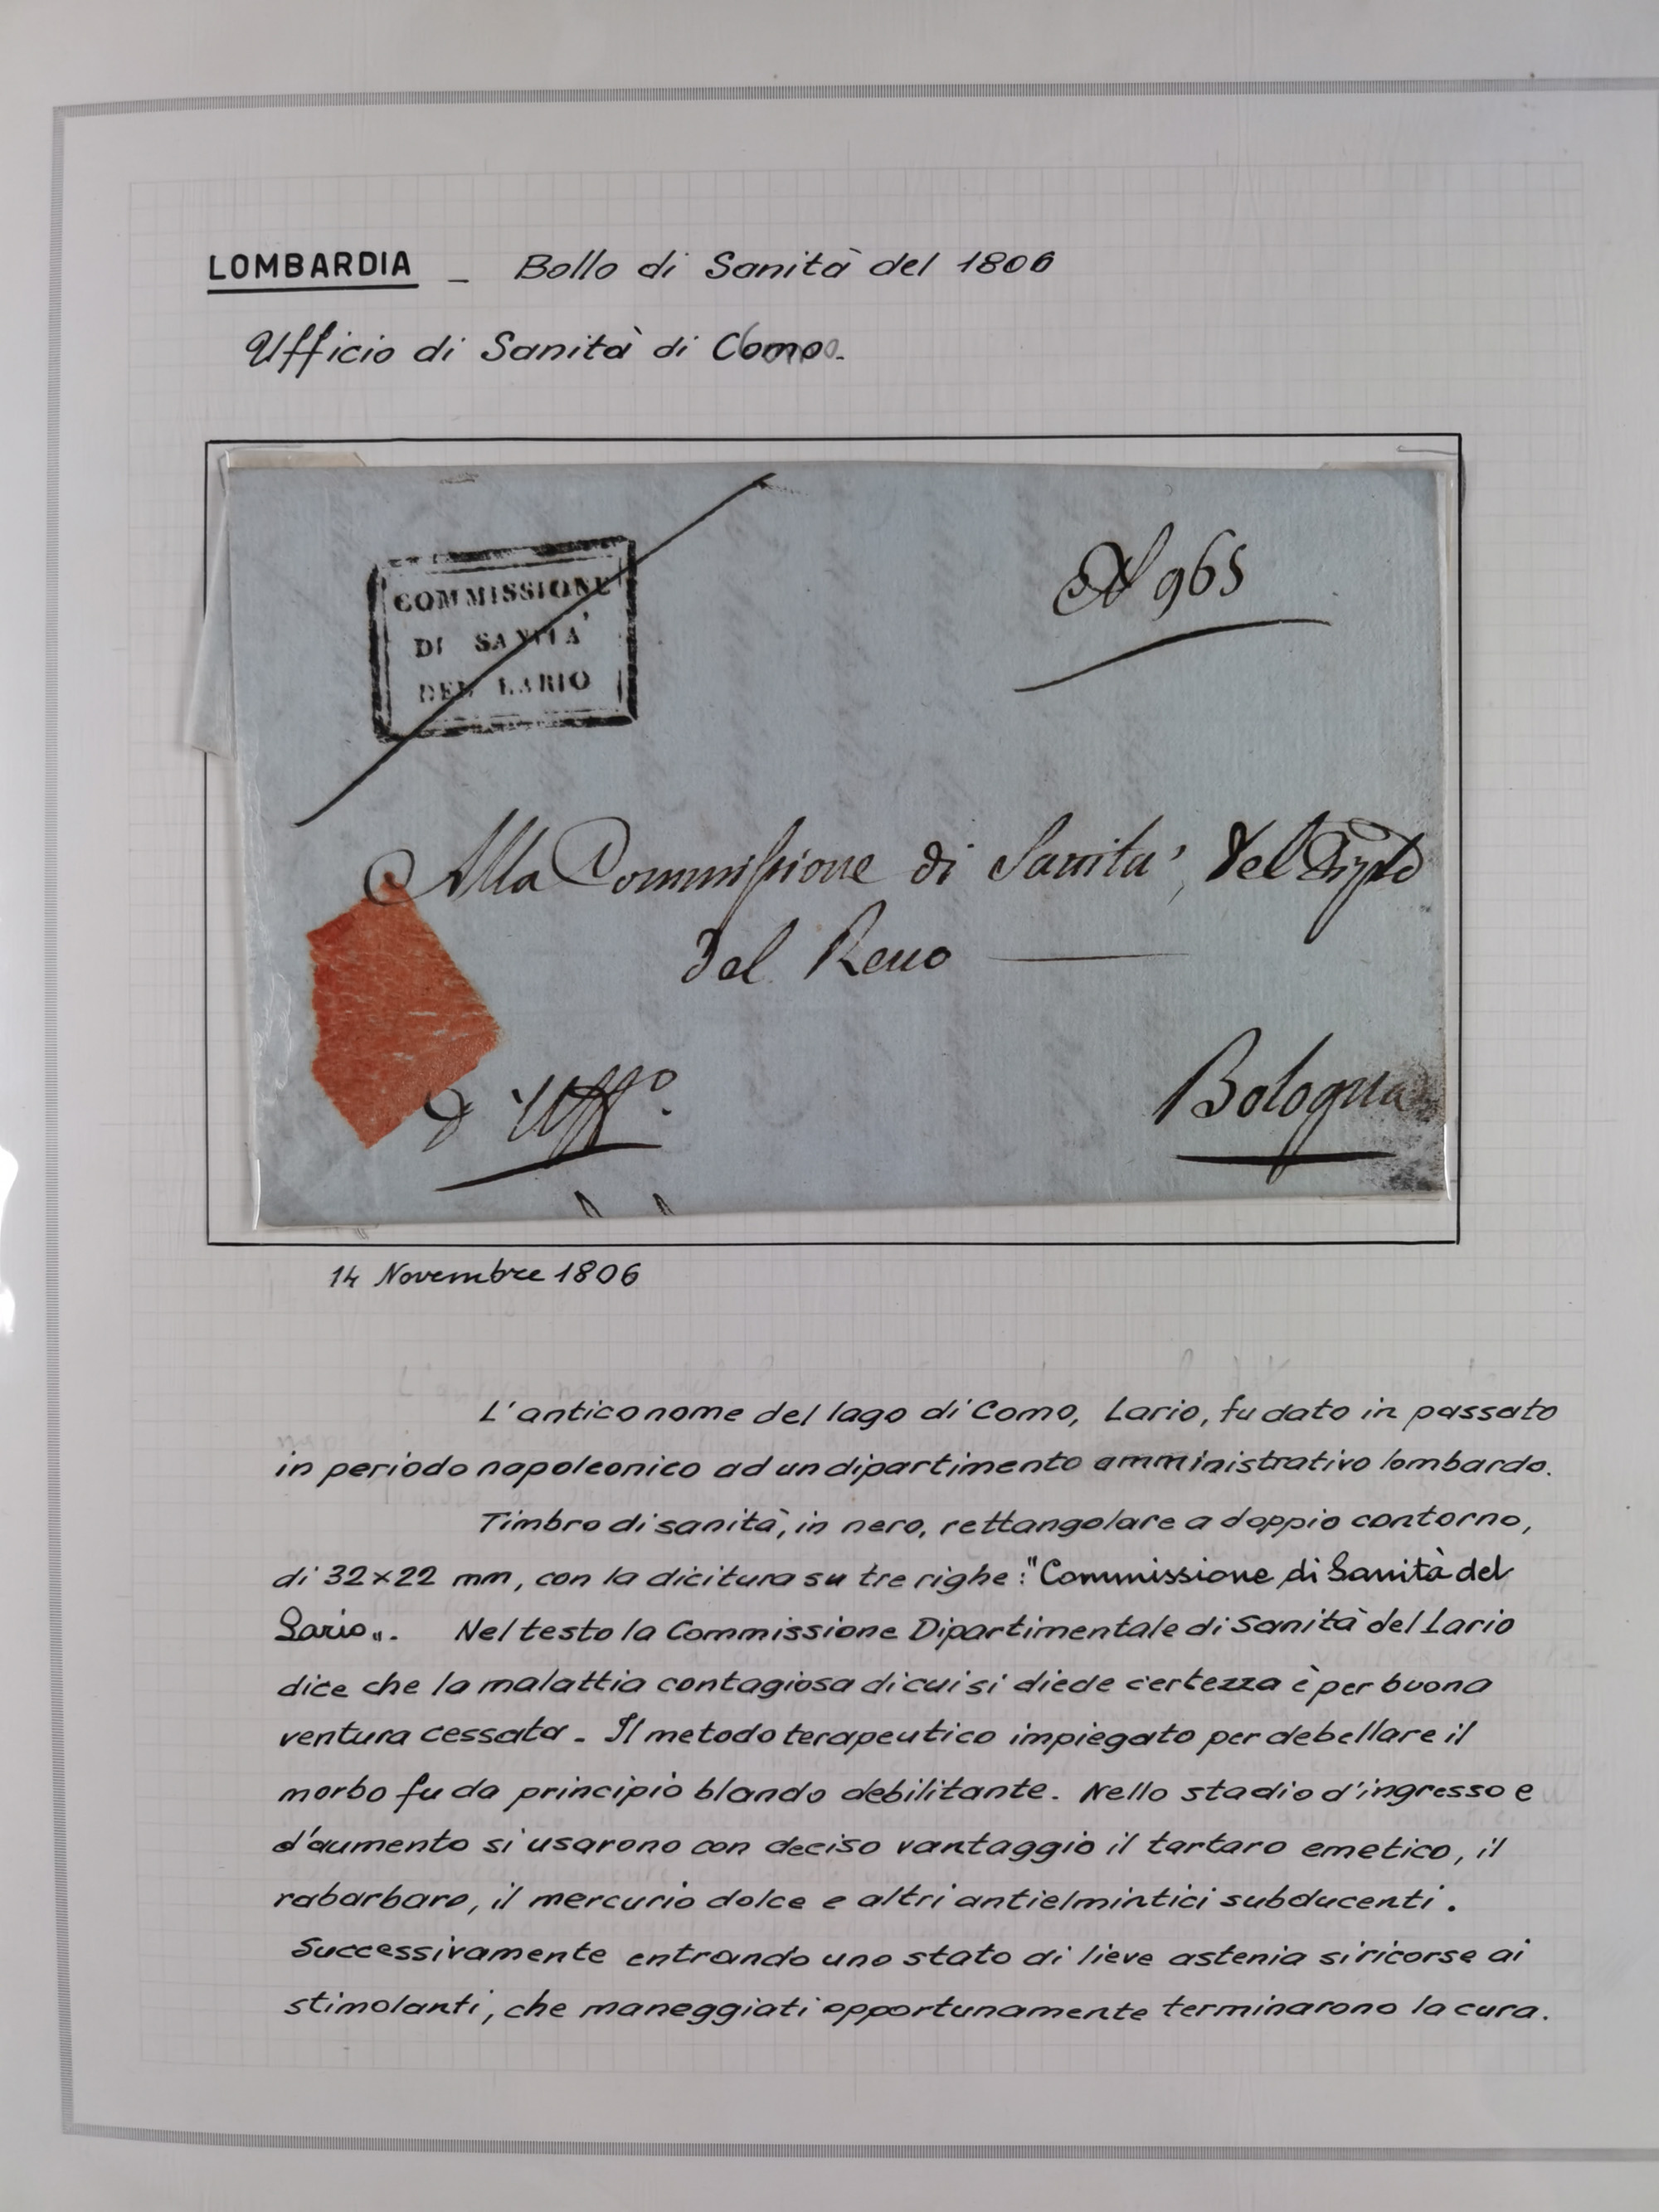 LOMBARDIA - Bollo di Sanità del 1806
Ufficio di Sanità di Como.
COMMISSIONE
DI SANITA'
DEL LARIO
N 965
Alla Commissione di Sanita', del Dipto
Del Reno
D'Uffo.
Bologna
14 Novembre 1806
L'antico nome del lago di Como, Lario, fu dato in passato
in periodo napoleonico ad un dipartimento amministrativo lombardo.
Timbro di sanità, in nero, rettangolare a doppio contorno,
di 32x22 mm, con la dicitura su tre righe: "Commissione di Sanità del
Lario". Nel testo la Commissione Dipartimentale di Sanità del Lario
dice che la malattia contagiosa di cui si diede certezza è per buona
ventura cessata. Il metodo terapeutico impiegato per debellare il
morbo fu da principio blando debilitante. Nello stadio d'ingresso e
d'aumento si usarono con deciso vantaggio il tartaro emetico, il
rabarbaro, il mercurio dolce e altri antielmintici subducenti.
Successivamente entrando uno stato di lieve astenia si ricorse ai
stimolanti, che maneggiati opportunamente terminarono la cura.